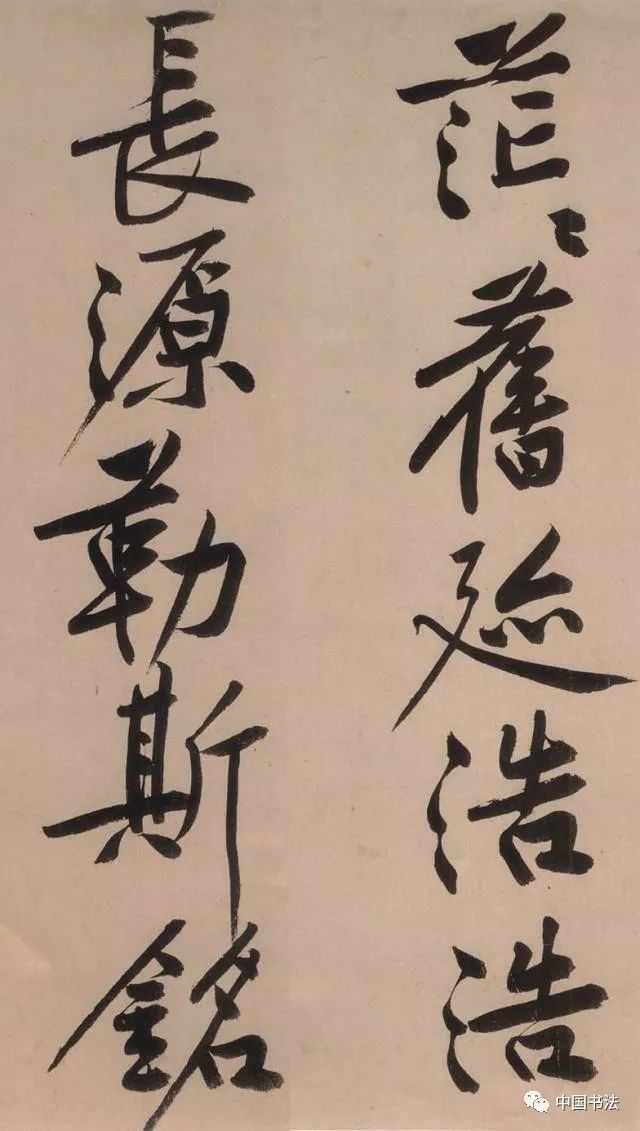 茫〻舊迹浩浩
長源勒斯銘
中国书法